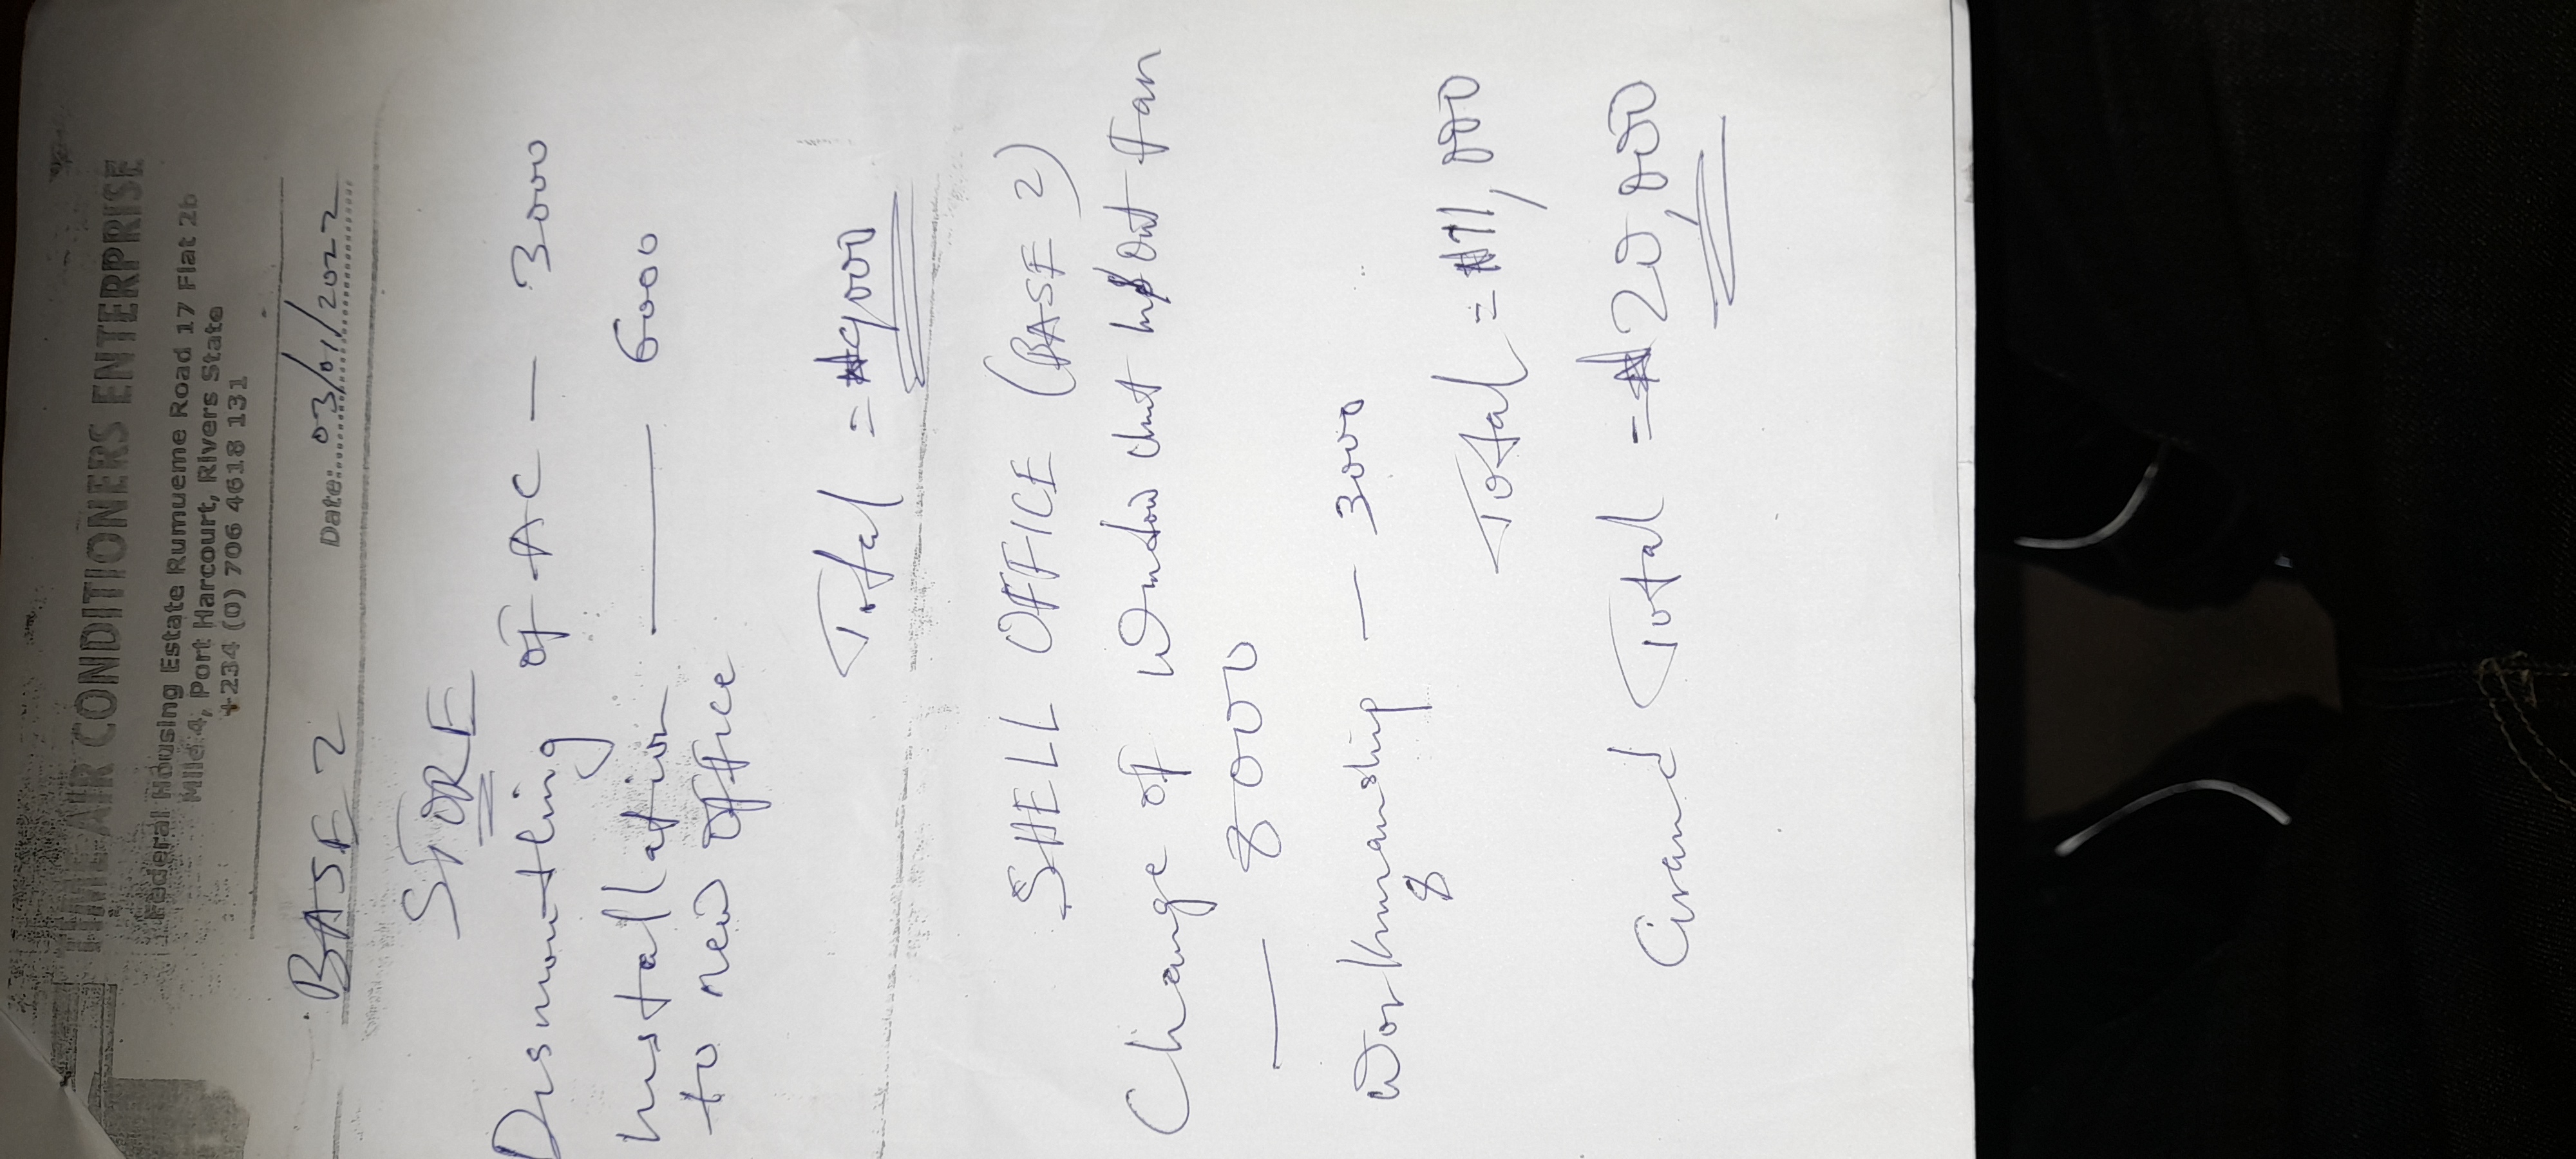 TIME AIR CONDITIONERS ENTERPRISE
Federal Housing Estate Rumueme Road 17 Flat 2b
Mile 4, Port Harcourt, Rivers State
+234 (0) 706 4618 131
BASE 2 Date: 03/01/2022
STORE
Dismountling of AC — 3000
Installation — 6000
to new office
Total = ₦9000
SHELL OFFICE (BASE 2)
Change of Window Out Fan
— 8000
Workmanship — 3000
8
Total = ₦11,000
Grand Total = ₦20,000